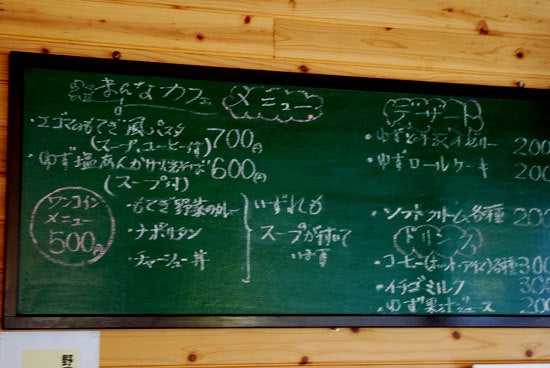 まんなカフェ メニュー
・エゴマのもてぎ風パスタ 700円
(スープ、コーヒー付)
・ゆず塩あんかけ焼そば 600円
(スープ付)
ワンコイン
メニュー
500円
・もてぎ野菜のカレー
・ナポリタン
・チャーシュー丼
いずれも
スープが付いて
います
デザート
200
・ゆずロールケーキ 200
・ソフトクリーム各種 200
ドリンク
・コーヒー(ホット・アイス)各種 300
・イチゴミルク 300
・ゆず果汁ジュース 200
野